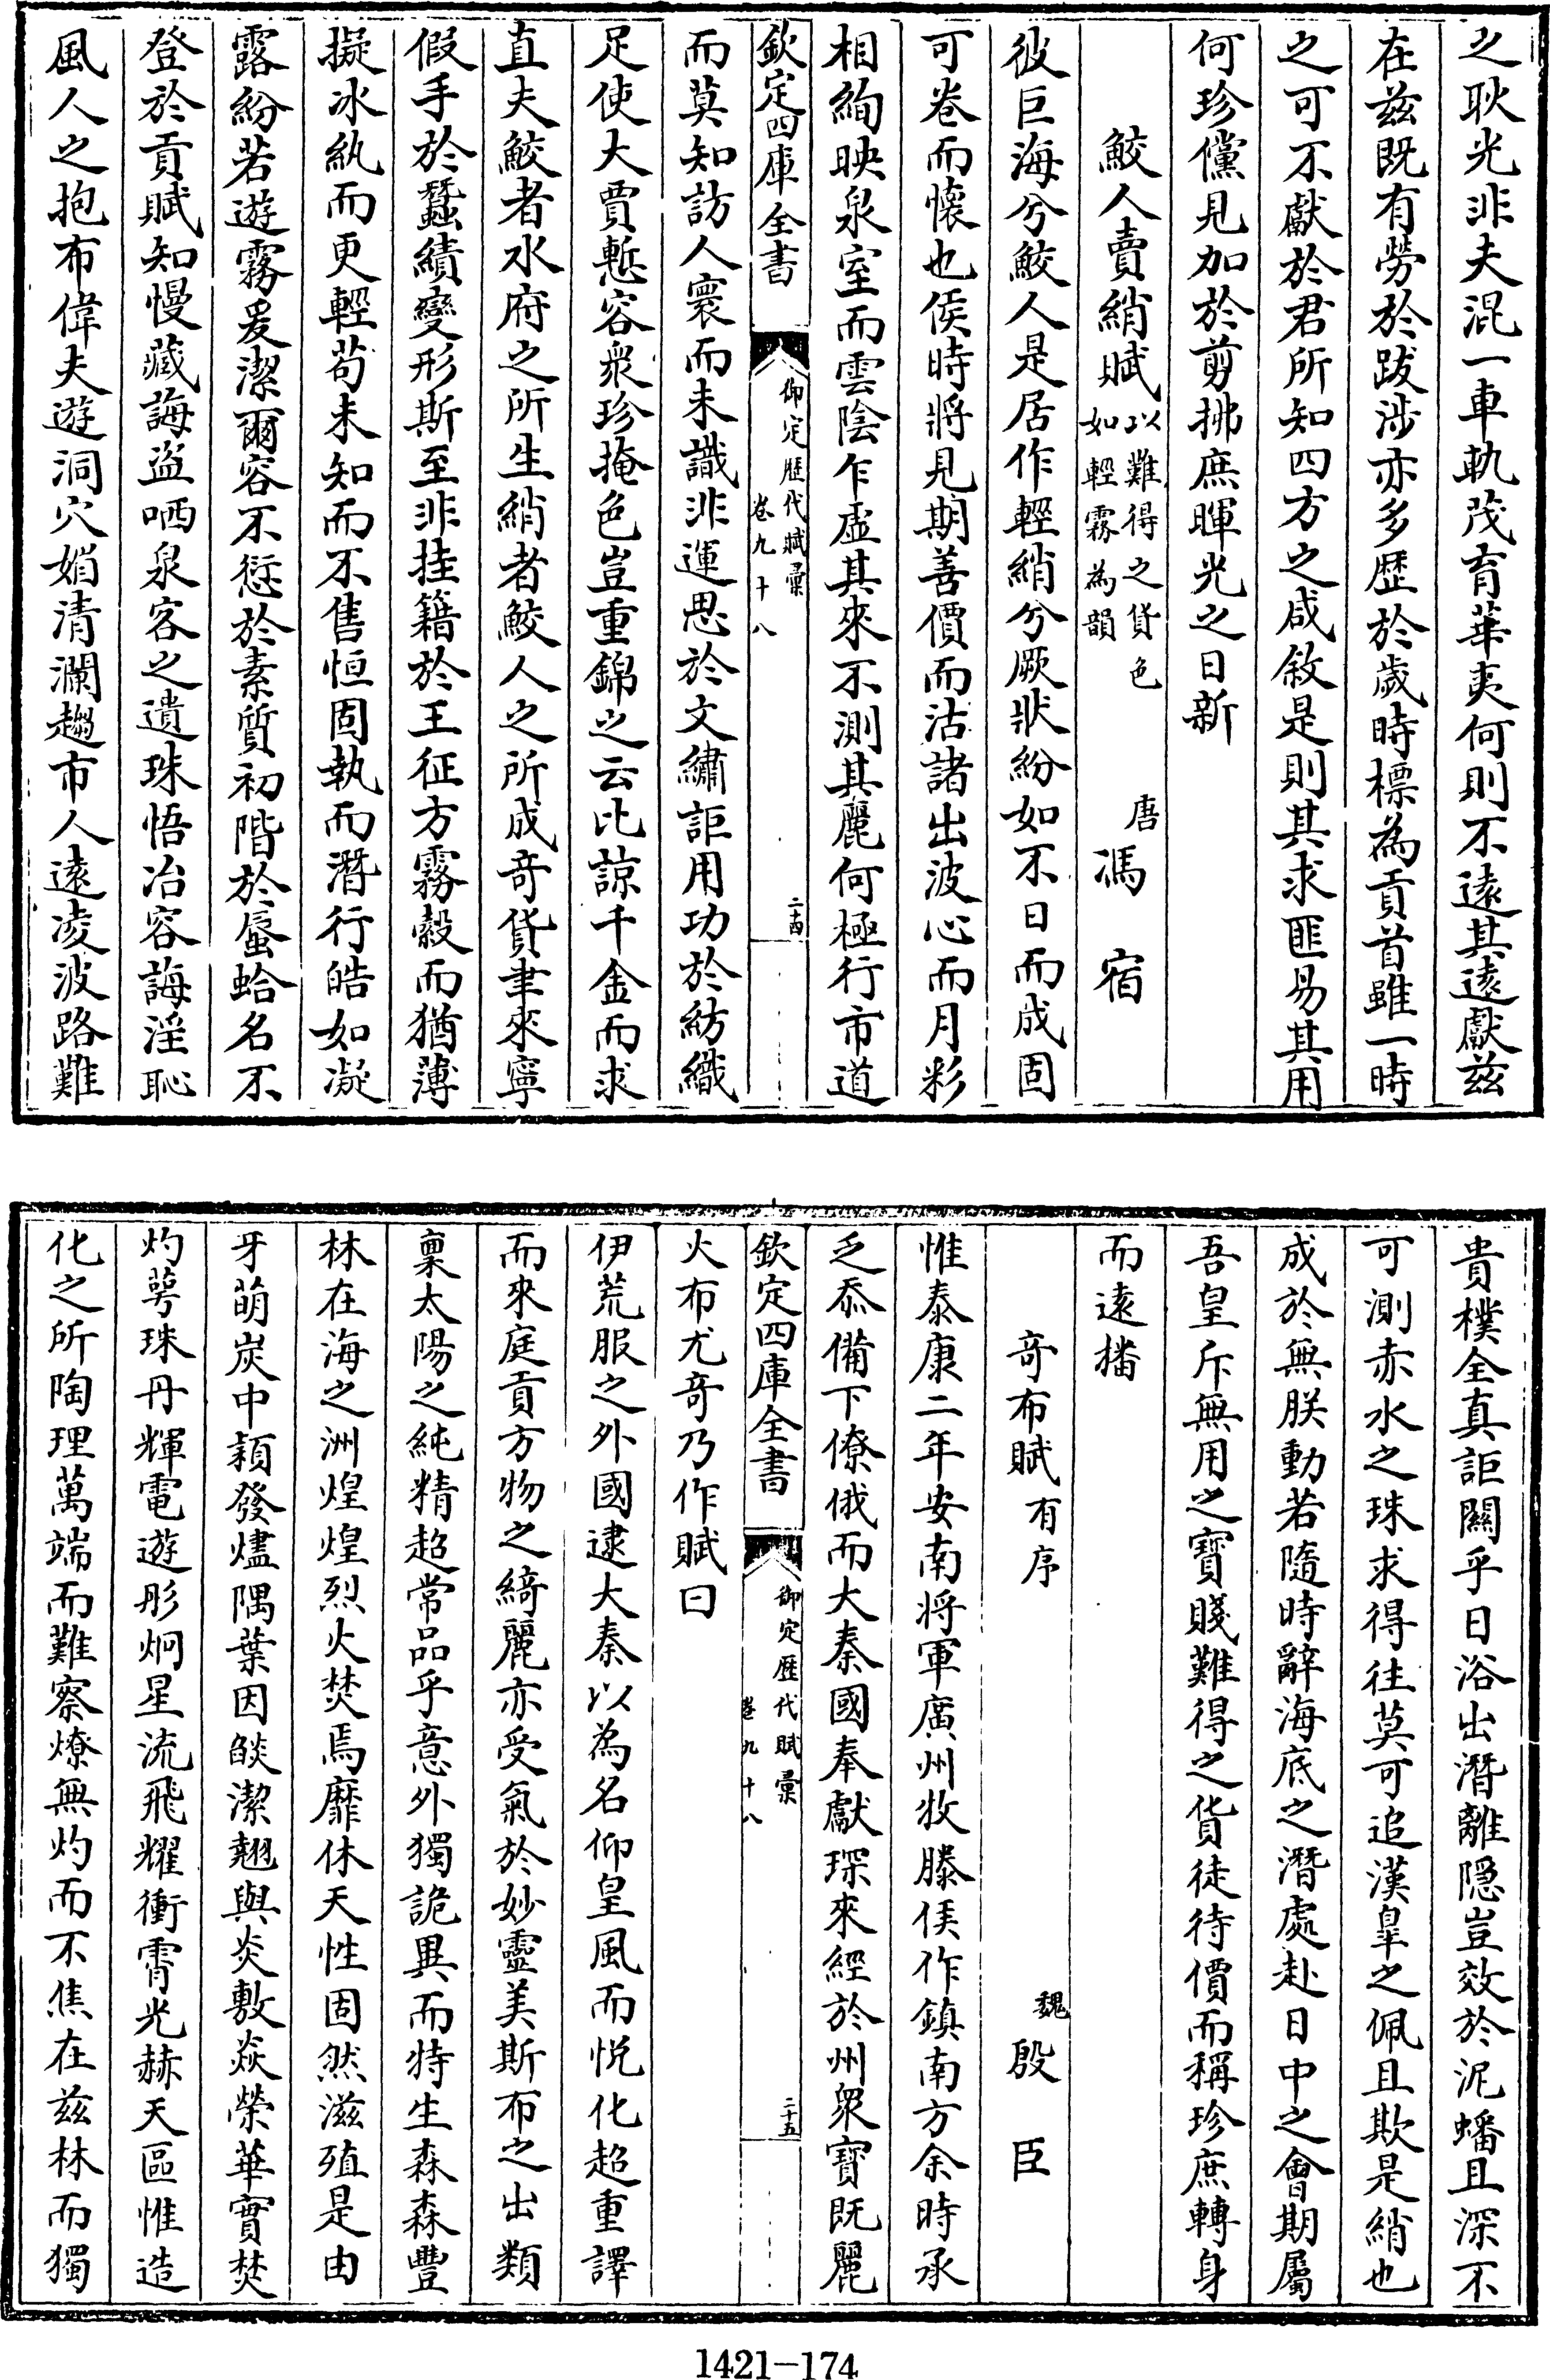 之耿光非夫混一車軌茂育華夷何則不遠其遠獻兹
在兹既有勞於跋涉亦多歴於歲時標為貢首雖一時
之可不獻於君所知四方之咸敘是則其求匪易其用
何珍儻見加於剪拂庶暉光之日新
鮫人賣綃賦以難得之貨色如輕霧為韻 唐 馮宿
彼巨海兮鮫人是居作輕綃兮厥狀紛如不日而成固
可卷而懷也俟時將見期善價而沽諸出波心而月彩
相絢映泉室而雲陰乍虛其來不測其麗何極行市道
欽定四庫全書 御定歴代賦彙 卷九十八 二十四
而莫知訪人寰而未識非運思於文繡詎用功於紡織
足使大賈慙容衆珍掩色豈重錦之云比諒千金而求
直夫鮫者水府之所生綃者鮫人之所成奇貨聿來寧
假手於蠶績變形斯至非挂籍於王征方霧縠而猶薄
擬冰紈而更輕苟未知而不售恒固執而潛行皓如凝
露紛若遊霧爰潔爾容不愆於素質初階於蜃蛤名不
登於貢賦知慢藏誨盜哂泉客之遺珠悟冶容誨淫恥
風人之抱布偉夫遊洞穴娟清瀾趨市人遠凌波路難
貴樸全真詎闗乎日浴出潛離隠豈效於泥蟠且深不
可測赤水之珠求得往莫可追漢臯之佩且欺是綃也
成於無朕動若隨時辭海底之潛處赴日中之會期屬
吾皇斥無用之寶賤難得之貨徒待價而稱珍庶轉身
而遠播
奇布賦有序 魏 殷臣
惟泰康二年安南將軍廣州牧滕侯作鎮南方余時承
乏忝備下僚俄而大秦國奉獻琛來經於州衆寶既麗
欽定四庫全書 御定歴代賦彙 卷九十八 二十五
火布尤奇乃作賦曰
伊荒服之外國逮大秦以為名仰皇風而悦化超重譯
而來庭貢方物之綺麗亦受氣於妙靈美斯布之出類
稟太陽之純精超常品乎意外獨詭異而特生森森豐
林在海之洲煌煌烈火焚焉靡休天性固然滋殖是由
牙萌炭中穎發燼隅葉因燄潔翹與炎敷焱榮華實焚
灼萼珠丹輝電遊彤炯星流飛耀衝霄光赫天區惟造
化之所陶理萬端而難察燎無灼而不焦在兹林而獨
1421—174